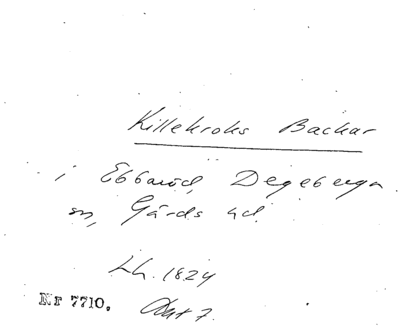 Killekroks Backar
i Ebbaröd, Degeberga
sn, Gärds hd.
Lh. 1824
Nr 7710. Akt 7.